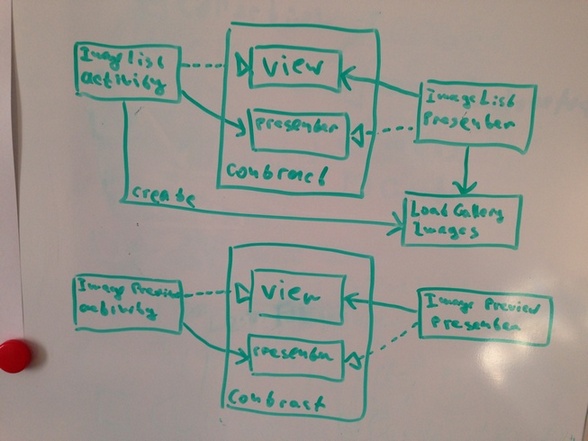 Image List
activity
view
presenter
contract
Image List
Presenter
create
Load Gallery
Images
Image Preview
activity
view
presenter
contract
Image Preview
Presenter